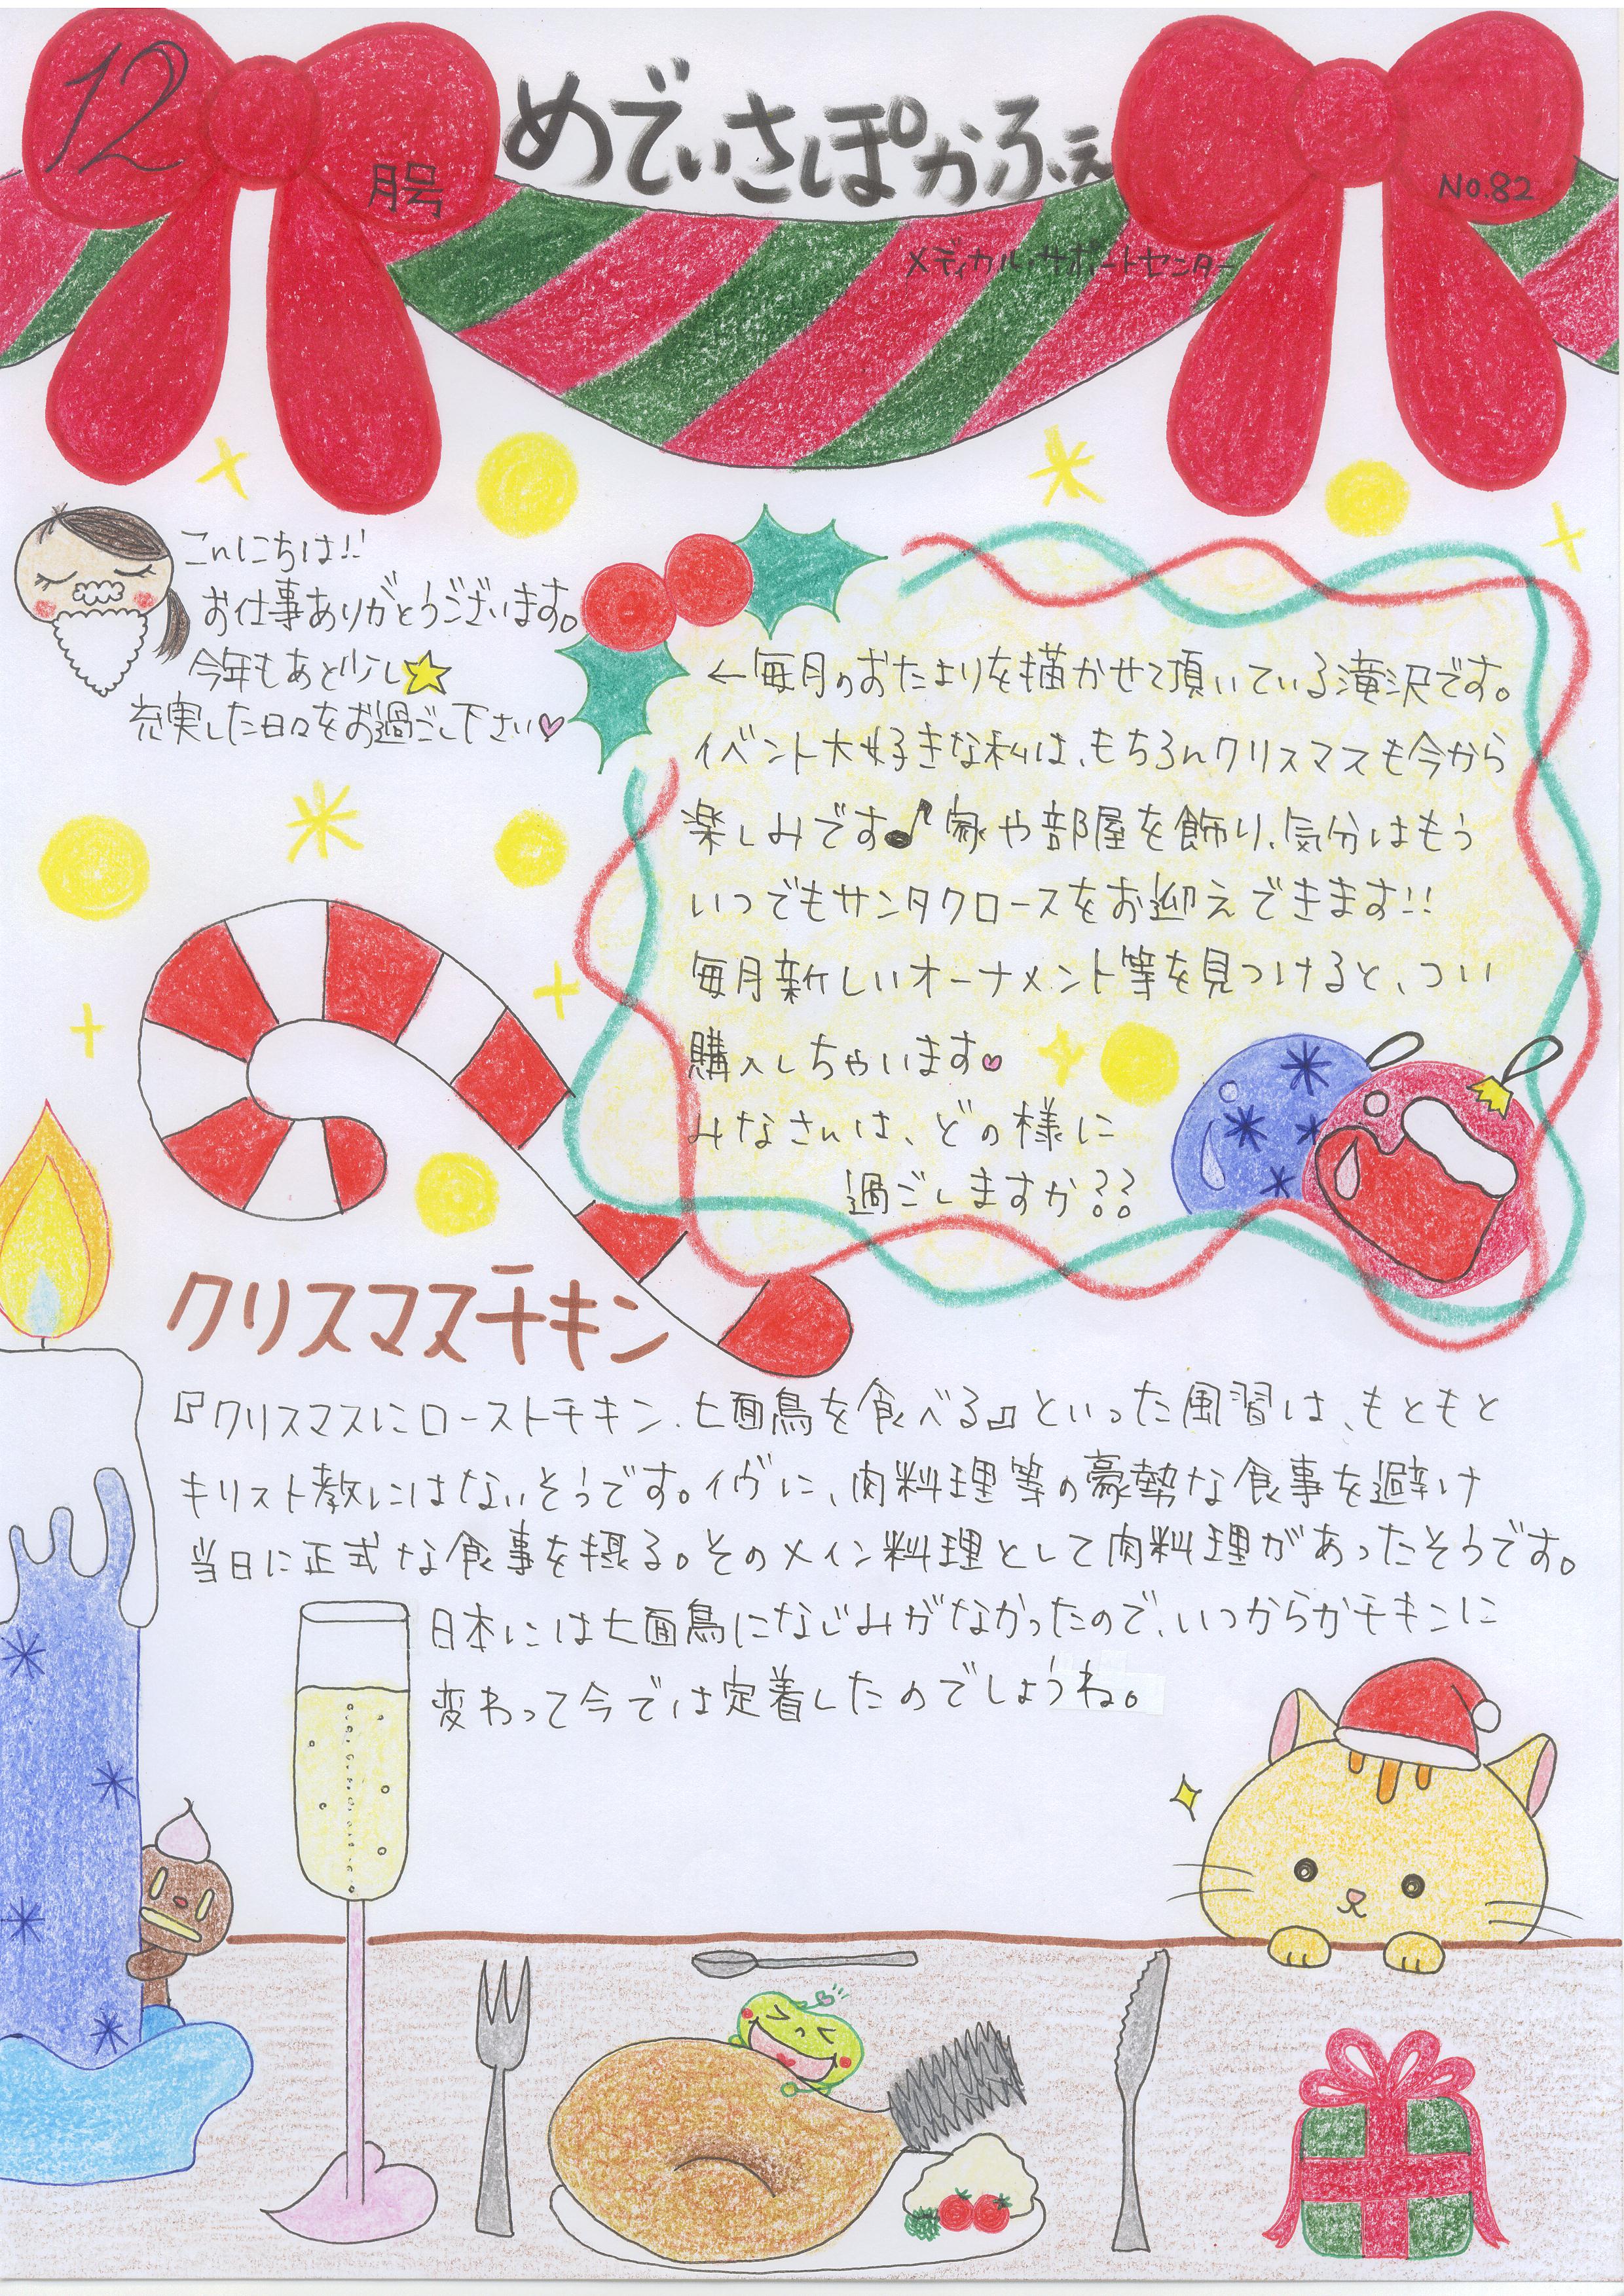 12
月号
めでぃさぽかふぇ
No.82
メディカルサポートセンター
こんにちは!!
お仕事ありがとうございます。
今年もあと少し☆
充実した日々をお過ごし下さい♡
←毎月のおたよりを描かせて頂いている滝沢です。
イベント大好きな私は、もちろんクリスマスも今から
楽しみです♪家や部屋を飾り、気分はもう
いつでもサンタクロースをお迎えできます!!
毎月新しいオーナメント等を見つけると、つい
購入しちゃいます♡
みなさんは、どの様に
過ごしますか??
クリスマスチキン
『クリスマスにローストチキン、七面鳥を食べる』といった風習は、もともと
キリスト教にはないそうです。イヴに、肉料理等の豪勢な食事を避け
当日に正式な食事を摂る。そのメイン料理として肉料理があったそうです。
日本には七面鳥になじみがなかったので、いつからかチキンに
変わって今では定着したのでしょうね。